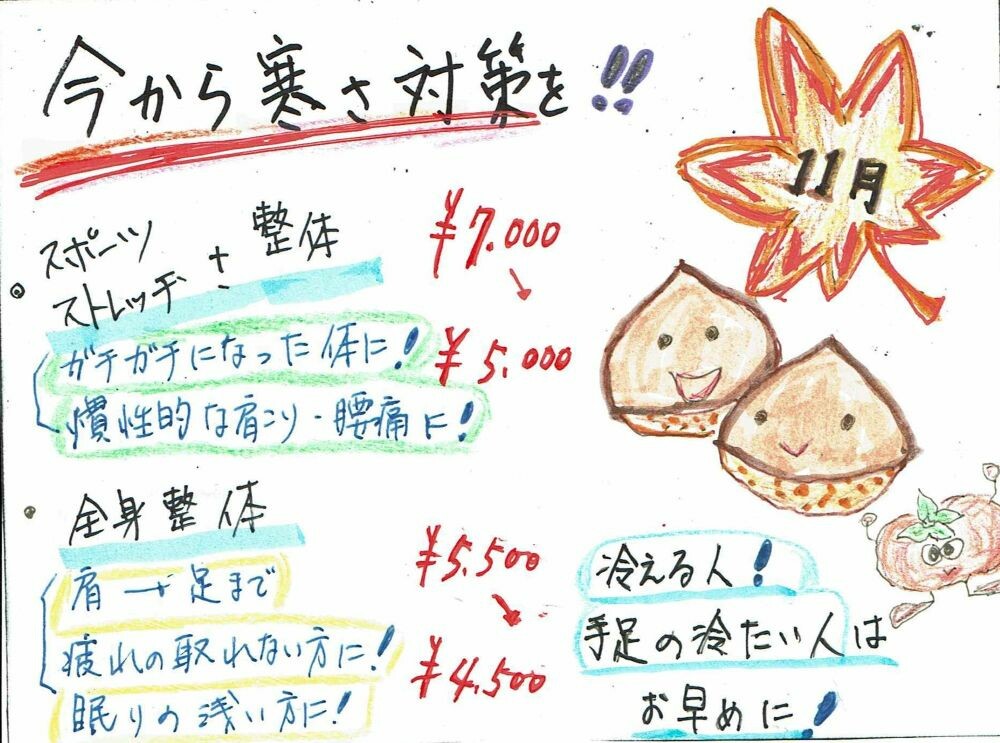 今から寒さ対策を!!
11月
スポーツ
ストレッチ + 整体
¥7.000
↘
¥5.000
ガチガチになった体に!
慣性的な肩こり・腰痛に!
全身整体
¥5.500
↘
¥4.500
肩→足まで
疲れの取れない方に!
眠りの浅い方に!
冷える人!
手足の冷たい人は
お早めに!